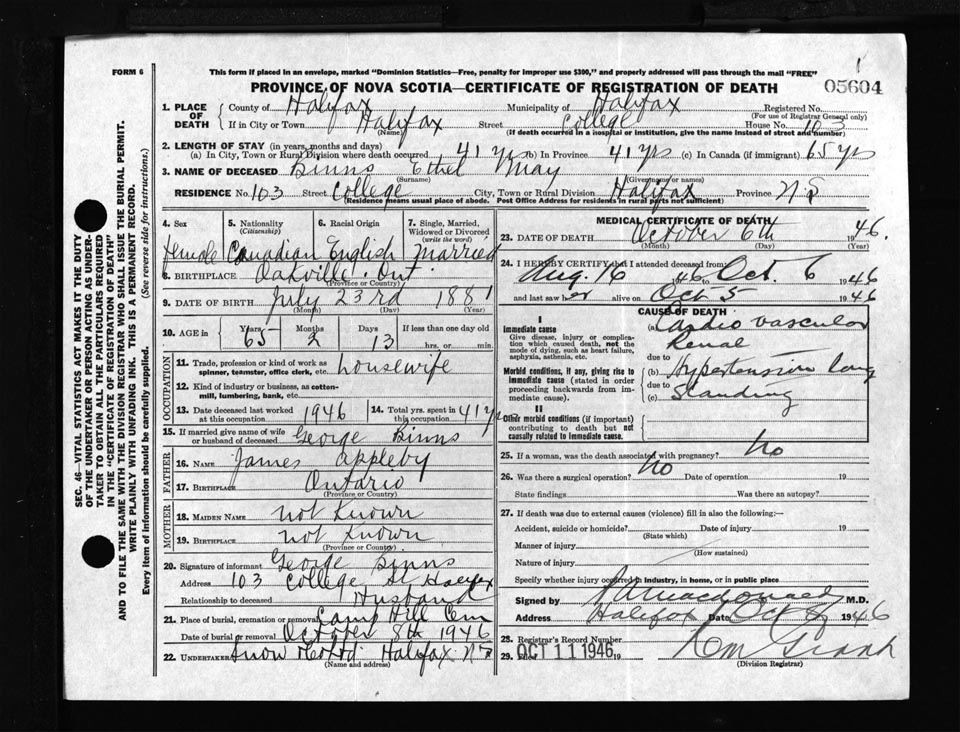 1
FORM 6
This form if placed in an envelope, marked "Dominion Statistics—Free, penalty for improper use $300," and properly addressed will pass through the mail "FREE"
PROVINCE OF NOVA SCOTIA—CERTIFICATE OF REGISTRATION OF DEATH
05604
SEC. 46—VITAL STATISTICS ACT MAKES IT THE DUTY
OF THE UNDERTAKER OR PERSON ACTING AS UNDER-
TAKER TO OBTAIN ALL THE PARTICULARS REQUIRED
IN THE "CERTIFICATE OF REGISTRATION OF DEATH"
AND TO FILE THE SAME WITH THE DIVISION REGISTRAR WHO SHALL ISSUE THE BURIAL PERMIT.
WRITE PLAINLY WITH UNFADING INK. THIS IS A PERMANENT RECORD.
Every item of information should be carefully supplied. (See reverse side for instructions.)
1. PLACE OF DEATH
County of Halifax Municipality of Halifax Registered No.
(For use of Registrar General only)
If in City or Town Halifax Street College House No. 103
(Name) (If death occurred in a hospital or institution, give the name instead of street and number)
2. LENGTH OF STAY (in years, months and days)
(a) In City, Town or Rural Division where death occurred 41 yrs (b) In Province 41 yrs (c) In Canada (if immigrant) 65 yrs
3. NAME OF DECEASED Binns Ethel May
(Surname) (Given name or names)
RESIDENCE No. 103 Street College City, Town or Rural Division Halifax Province N S
(Residence means usual place of abode. Post Office Address for residents in rural parts not sufficient)
4. Sex 5. Nationality 6. Racial Origin 7. Single, Married,
(Citizenship) Widowed or Divorced
(write the word)
female Canadian English married
8. BIRTHPLACE Oakville Ont
(Province or Country)
9. DATE OF BIRTH July 23rd 1881
(Month) (Day) (Year)
10. AGE in Years Months Days If less than one day old
65 2 13 hrs. or min.
OCCUPATION
11. Trade, profession or kind of work as housewife
spinner, teamster, office clerk, etc.
12. Kind of industry or business, as cotton-
mill, lumbering, bank, etc.
13. Date deceased last worked at this occupation 1946 14. Total yrs. spent in this occupation 41 yrs
15. If married give name of wife or husband of deceased George Binns
FATHER
16. NAME James Appleby
17. BIRTHPLACE Ontario
(Province or Country)
MOTHER
18. MAIDEN NAME not Known
19. BIRTHPLACE not Known
(Province or Country)
20. Signature of informant George Binns
Address 103 College St Halifax
Relationship to deceased Husband
21. Place of burial, cremation or removal Camp Hill Cem
Date of burial or removal October 8th 1946
22. UNDERTAKER Snow Halifax N S
(Name and address)
MEDICAL CERTIFICATE OF DEATH
23. DATE OF DEATH October 6th 1946.
(Month) (Day) (Year)
24. I HEREBY CERTIFY that I attended deceased from:
Aug. 16 1946 to Oct. 6 1946
and last saw her alive on Oct 5 1946
CAUSE OF DEATH
I
Immediate cause (a) Cardio vascular
Give disease, injury or complica-
tion which caused death, not the
mode of dying, such as heart failure,
asphyxia, asthenia, etc.
Renal
due to
Morbid conditions, if any, giving rise to
immediate cause (stated in order
proceeding backwards from im-
mediate cause).
(b) Hypertension long
due to
(c) Standing
II
Other morbid conditions (if important)
contributing to death but not
causally related to immediate cause.
25. If a woman, was the death associated with pregnancy? No
26. Was there a surgical operation? No Date of operation 19
State findings Was there an autopsy?
27. If death was due to external causes (violence) fill in also the following:—
Accident, suicide or homicide? Date of injury 19
(State which)
Manner of injury
(How sustained)
Nature of injury
Specify whether injury occurred in industry, in home, or in public place
Signed by Macdonald M.D.
Address Halifax Date Oct 8 1946
28. Registrar's Record Number
29. OCT 11 1946 19
(Division Registrar)